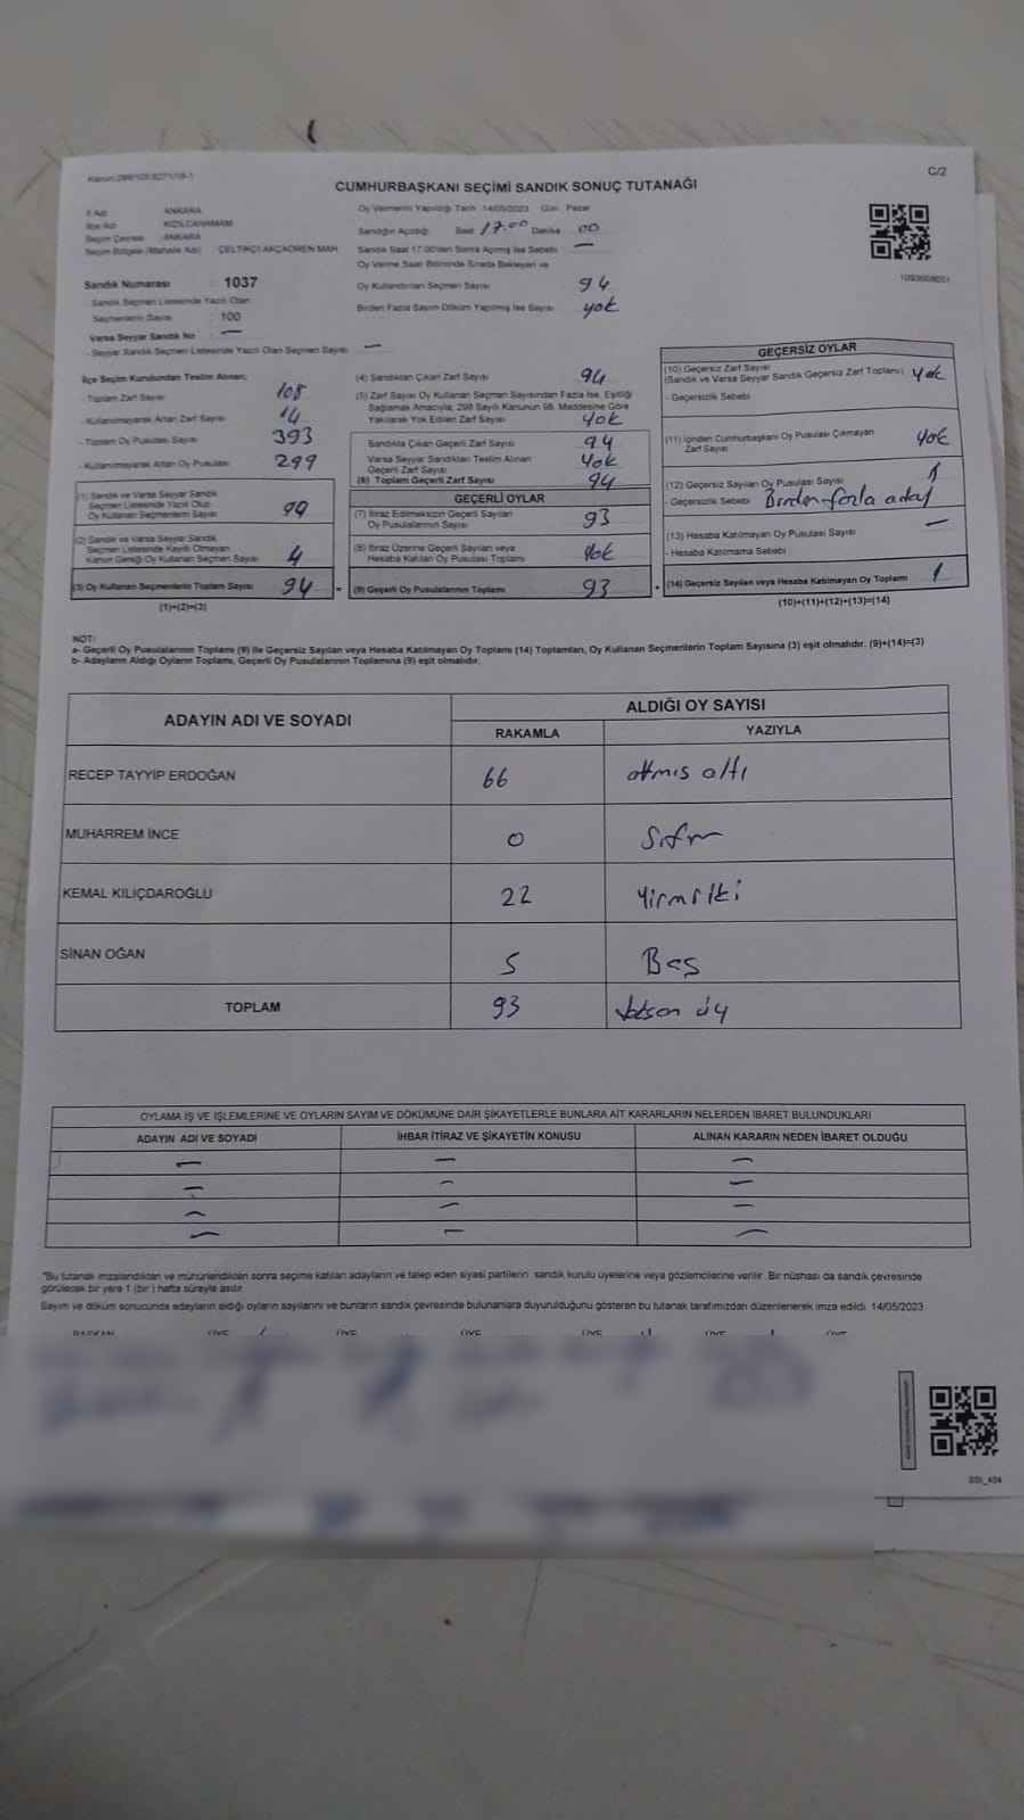 C/2
CUMHURBAŞKANI SEÇİMİ SANDIK SONUÇ TUTANAĞI
İl Adı ANKARA
İlçe Adı KIZILCAHAMAM
Seçim Çevresi ANKARA
Seçim Bölgesi (Mahalle Adı) ÇELTİKÇİ AKÇAÖREN MAH
Sandık Numarası 1037
Sandık Seçmen Listesinde Yazılı Olan
Seçmenlerin Sayısı 100
Varsa Seyyar Sandık No —
- Seyyar Sandık Seçmen Listesinde Yazılı Olan Seçmen Sayısı —
Oy Vermenin Yapıldığı Tarih 14/05/2023 Gün Pazar
Sandığın Açıldığı Saat 17.00 Dakika 00
Sandık Saat 17.00'den Sonra Açılmış İse Sebebi —
Oy Verme Saati Bitiminde Sırada Bekleyen ve
Oy Kullandırılan Seçmen Sayısı 94
Birden Fazla Sayım Döküm Yapılmış İse Sayısı yok
İlçe Seçim Kurulundan Teslim Alınan;
- Toplam Zarf Sayısı 108
- Kullanılmayarak Artan Zarf Sayısı 14
- Toplam Oy Pusulası Sayısı 393
- Kullanılmayarak Artan Oy Pusulası 299
(1) Sandık ve Varsa Seyyar Sandık
Seçmen Listesinde Yazılı Olup
Oy Kullanan Seçmenlerin Sayısı
(2) Sandık ve Varsa Seyyar Sandık
Seçmen Listesinde Kayıtlı Olmayan
Kanun Gereği Oy Kullanan Seçmen Sayısı 4
(3) Oy Kullanan Seçmenlerin Toplam Sayısı 94 =
(1)+(2)=(3)
(4) Sandıktan Çıkan Zarf Sayısı 94
(5) Zarf Sayısı Oy Kullanan Seçmen Sayısından Fazla İse, Eşitliği
Sağlamak Amacıyla, 298 Sayılı Kanunun 98. Maddesine Göre
Yakılarak Yok Edilen Zarf Sayısı yok
Sandıkta Çıkan Geçerli Zarf Sayısı 94
Varsa Seyyar Sandıktan Teslim Alınan
Geçerli Zarf Sayısı yok
(6) Toplam Geçerli Zarf Sayısı 94
GEÇERLİ OYLAR
(7) İtiraz Edilmeksizin Geçerli Sayılan
Oy Pusulalarının Sayısı 93
(8) İtiraz Üzerine Geçerli Sayılan veya
Hesaba Katılan Oy Pusulası Toplamı yok
(9) Geçerli Oy Pusulalarının Toplamı 93 +
GEÇERSİZ OYLAR
(10) Geçersiz Zarf Sayısı
(Sandık ve Varsa Seyyar Sandık Geçersiz Zarf Toplamı) yok
- Geçersizlik Sebebi
(11) İçinden Cumhurbaşkanı Oy Pusulası Çıkmayan
Zarf Sayısı yok
(12) Geçersiz Sayılan Oy Pusulası Sayısı 1
- Geçersizlik Sebebi Birden fazla aday
(13) Hesaba Katılmayan Oy Pusulası Sayısı —
- Hesaba Katılmama Sebebi
(14) Geçersiz Sayılan veya Hesaba Katılmayan Oy Toplamı 1
(10)+(11)+(12)+(13)=(14)
NOT:
a- Geçerli Oy Pusulalarının Toplamı (9) ile Geçersiz Sayılan veya Hesaba Katılmayan Oy Toplamı (14) Toplamları, Oy Kullanan Seçmenlerin Toplam Sayısına (3) eşit olmalıdır. (9)+(14)=(3)
b- Adayların Aldığı Oyların Toplamı, Geçerli Oy Pusulalarının Toplamına (9) eşit olmalıdır.
ADAYIN ADI VE SOYADI
ALDIĞI OY SAYISI
RAKAMLA YAZIYLA
RECEP TAYYİP ERDOĞAN 66 Atmış altı
MUHARREM İNCE 0 Sıfır
KEMAL KILIÇDAROĞLU 22 Yirmi iki
SİNAN OĞAN 5 Beş
TOPLAM 93 doksan üç
OYLAMA İŞ VE İŞLEMLERİNE VE OYLARIN SAYIM VE DÖKÜMÜNE DAİR ŞİKAYETLERLE BUNLARA AİT KARARLARIN NELERDEN İBARET BULUNDUKLARI
ADAYIN ADI VE SOYADI İHBAR İTİRAZ VE ŞİKAYETİN KONUSU ALINAN KARARIN NEDEN İBARET OLDUĞU
— — —
— — —
— — —
— — —
"Bu tutanak imzalandıktan ve mühürlendikten sonra seçime katılan adayların ve talep eden siyasi partilerin sandık kurulu üyelerine veya gözlemcilerine verilir. Bir nüshası da sandık çevresinde
görülecek bir yere 1 (bir) hafta süreyle asılır.
Sayım ve döküm sonucunda adayların aldığı oyların sayılarını ve bunların sandık çevresinde bulunanlara duyurulduğunu gösteren bu tutanak tarafımızdan düzenlenerek imza edildi. 14/05/2023
BAŞKAN ÜYE ÜYE ÜYE ÜYE ÜYE ÜYE